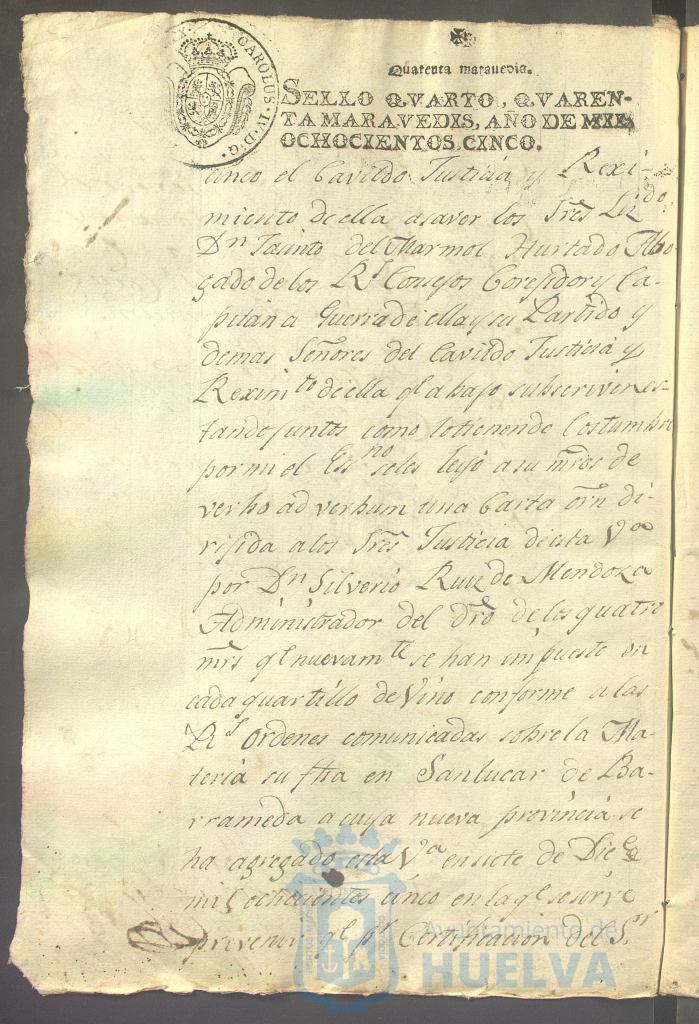 CAROLUS·IV·D·G·
Quarenta maravedis.
SELLO QVARTO, QVAREN-
TA MARAVEDIS, AÑO DE MIL
OCHOCIENTOS CINCO.
cinco el Cavildo Justicia y Rexi-
miento de ella asaver los Sres Lizdo
Dn Jacinto del Marmol Hurtado Abo-
gado de los Rs Consejos Corexidor y Ca-
pitan a Guerra de ella y su Partido y
demas Señores del Cavildo Justicia y
Reximto de ella ql abajo subscriven es-
tando juntos como lo tienen de Costumbre
por mi el Essno se les leyó a su mrds de
verbo ad verbum una Carta orn di-
rijida a los Sres Justicia de esta Va
por Dn Silverio Ruiz de Mendoza
Administrador del dro de los quatro
mrs ql nuevamte se han impuesto en
cada quartillo de Vino conforme a las
Rs Ordenes comunicadas sobre la Ma-
teria su fha en Sanlucar de Ba-
rrameda a cuya nueva provincia se
ha agregado esta Va en siete de Dice
mil ochocientos cinco en la ql se sirve
prevenir ql pr Certificacion del Sr
Ayuntamiento de
HUELVA